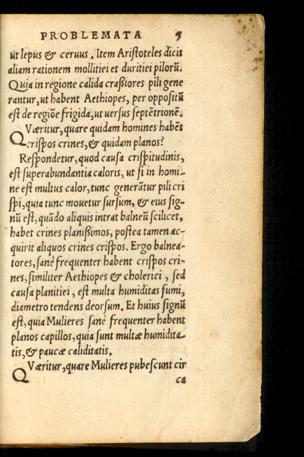 PROBLEMATA 5
ut lepus & ceruus. Item Aristoteles dicit
aliam rationem mollitiei et duritiei pilorũ.
Quia in regione calida craßiores pili gene
rantur, ut habent Aethiopes, per oppositũ
est de regiõe frigida, ut versus septẽtrionẽ.
QVæritur, quare quidam homines habẽt
crispos crines, & quidam planos?
Respondetur, quod causa crispitudinis,
est superabundantia caloris, ut si in homi-
ne est multus calor, tunc generãtur pili cri
spi, quia tunc mouetur sursum, & eius sig-
nũ est, quãdo aliquis intrat balneũ scilicet,
habet crines planißimos, postea tamen ac-
quirit aliquos crines crispos. Ergo balnea-
tores, sanè frequenter habent crispos cri-
nes, similiter Aethiopes & cholerici, sed
causa planitiei, est multa humiditas fumi,
diametro tendens deorsum. Et huius signũ
est, quia Mulieres sanè frequenter habent
planos capillos, quia sunt multæ humidita-
tis, & paucæ caliditatis.
QVæritur, quare Mulieres pubescunt cir
ca